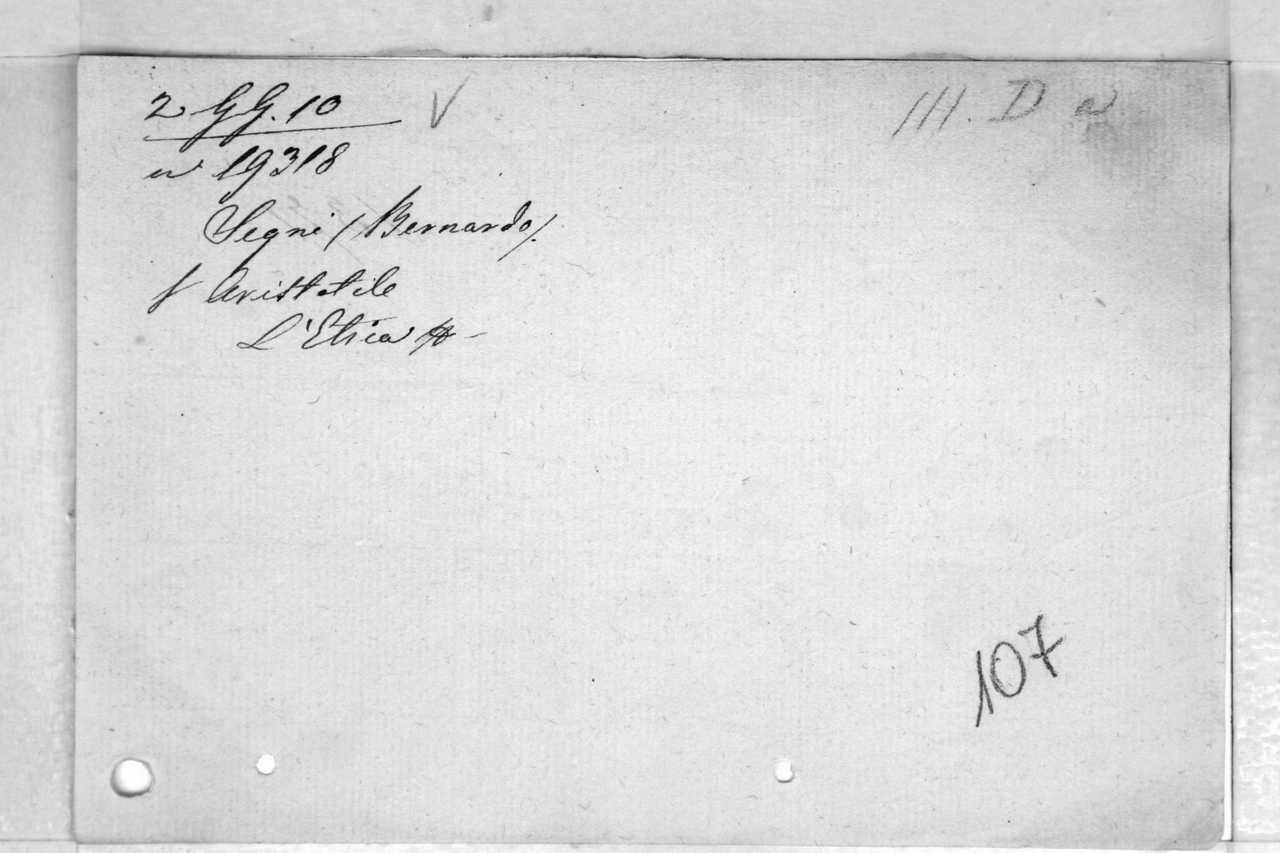 2 GG. 10 V III. D a
n 19318
Segni (Bernardo).
f Aristotile
L'Etica
107